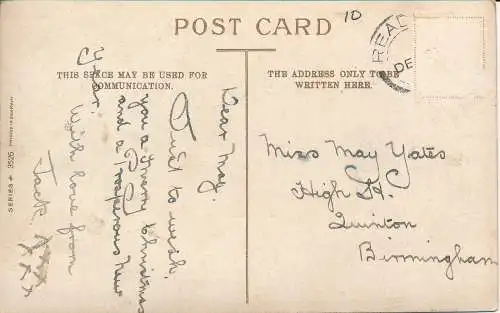 POST CARD
10
READ
DE
THIS SPACE MAY BE USED FOR
COMMUNICATION.
THE ADDRESS ONLY TO BE
WRITTEN HERE.
Dear May.
Just to wish
you a Merry Christmas
and a Prosperous New
Year.
With love from
Jack. xxx
xxx
Miss May Yates
High St
Quinton
Birmingham
SERIES # 1525 PRINTED IN GERMANY